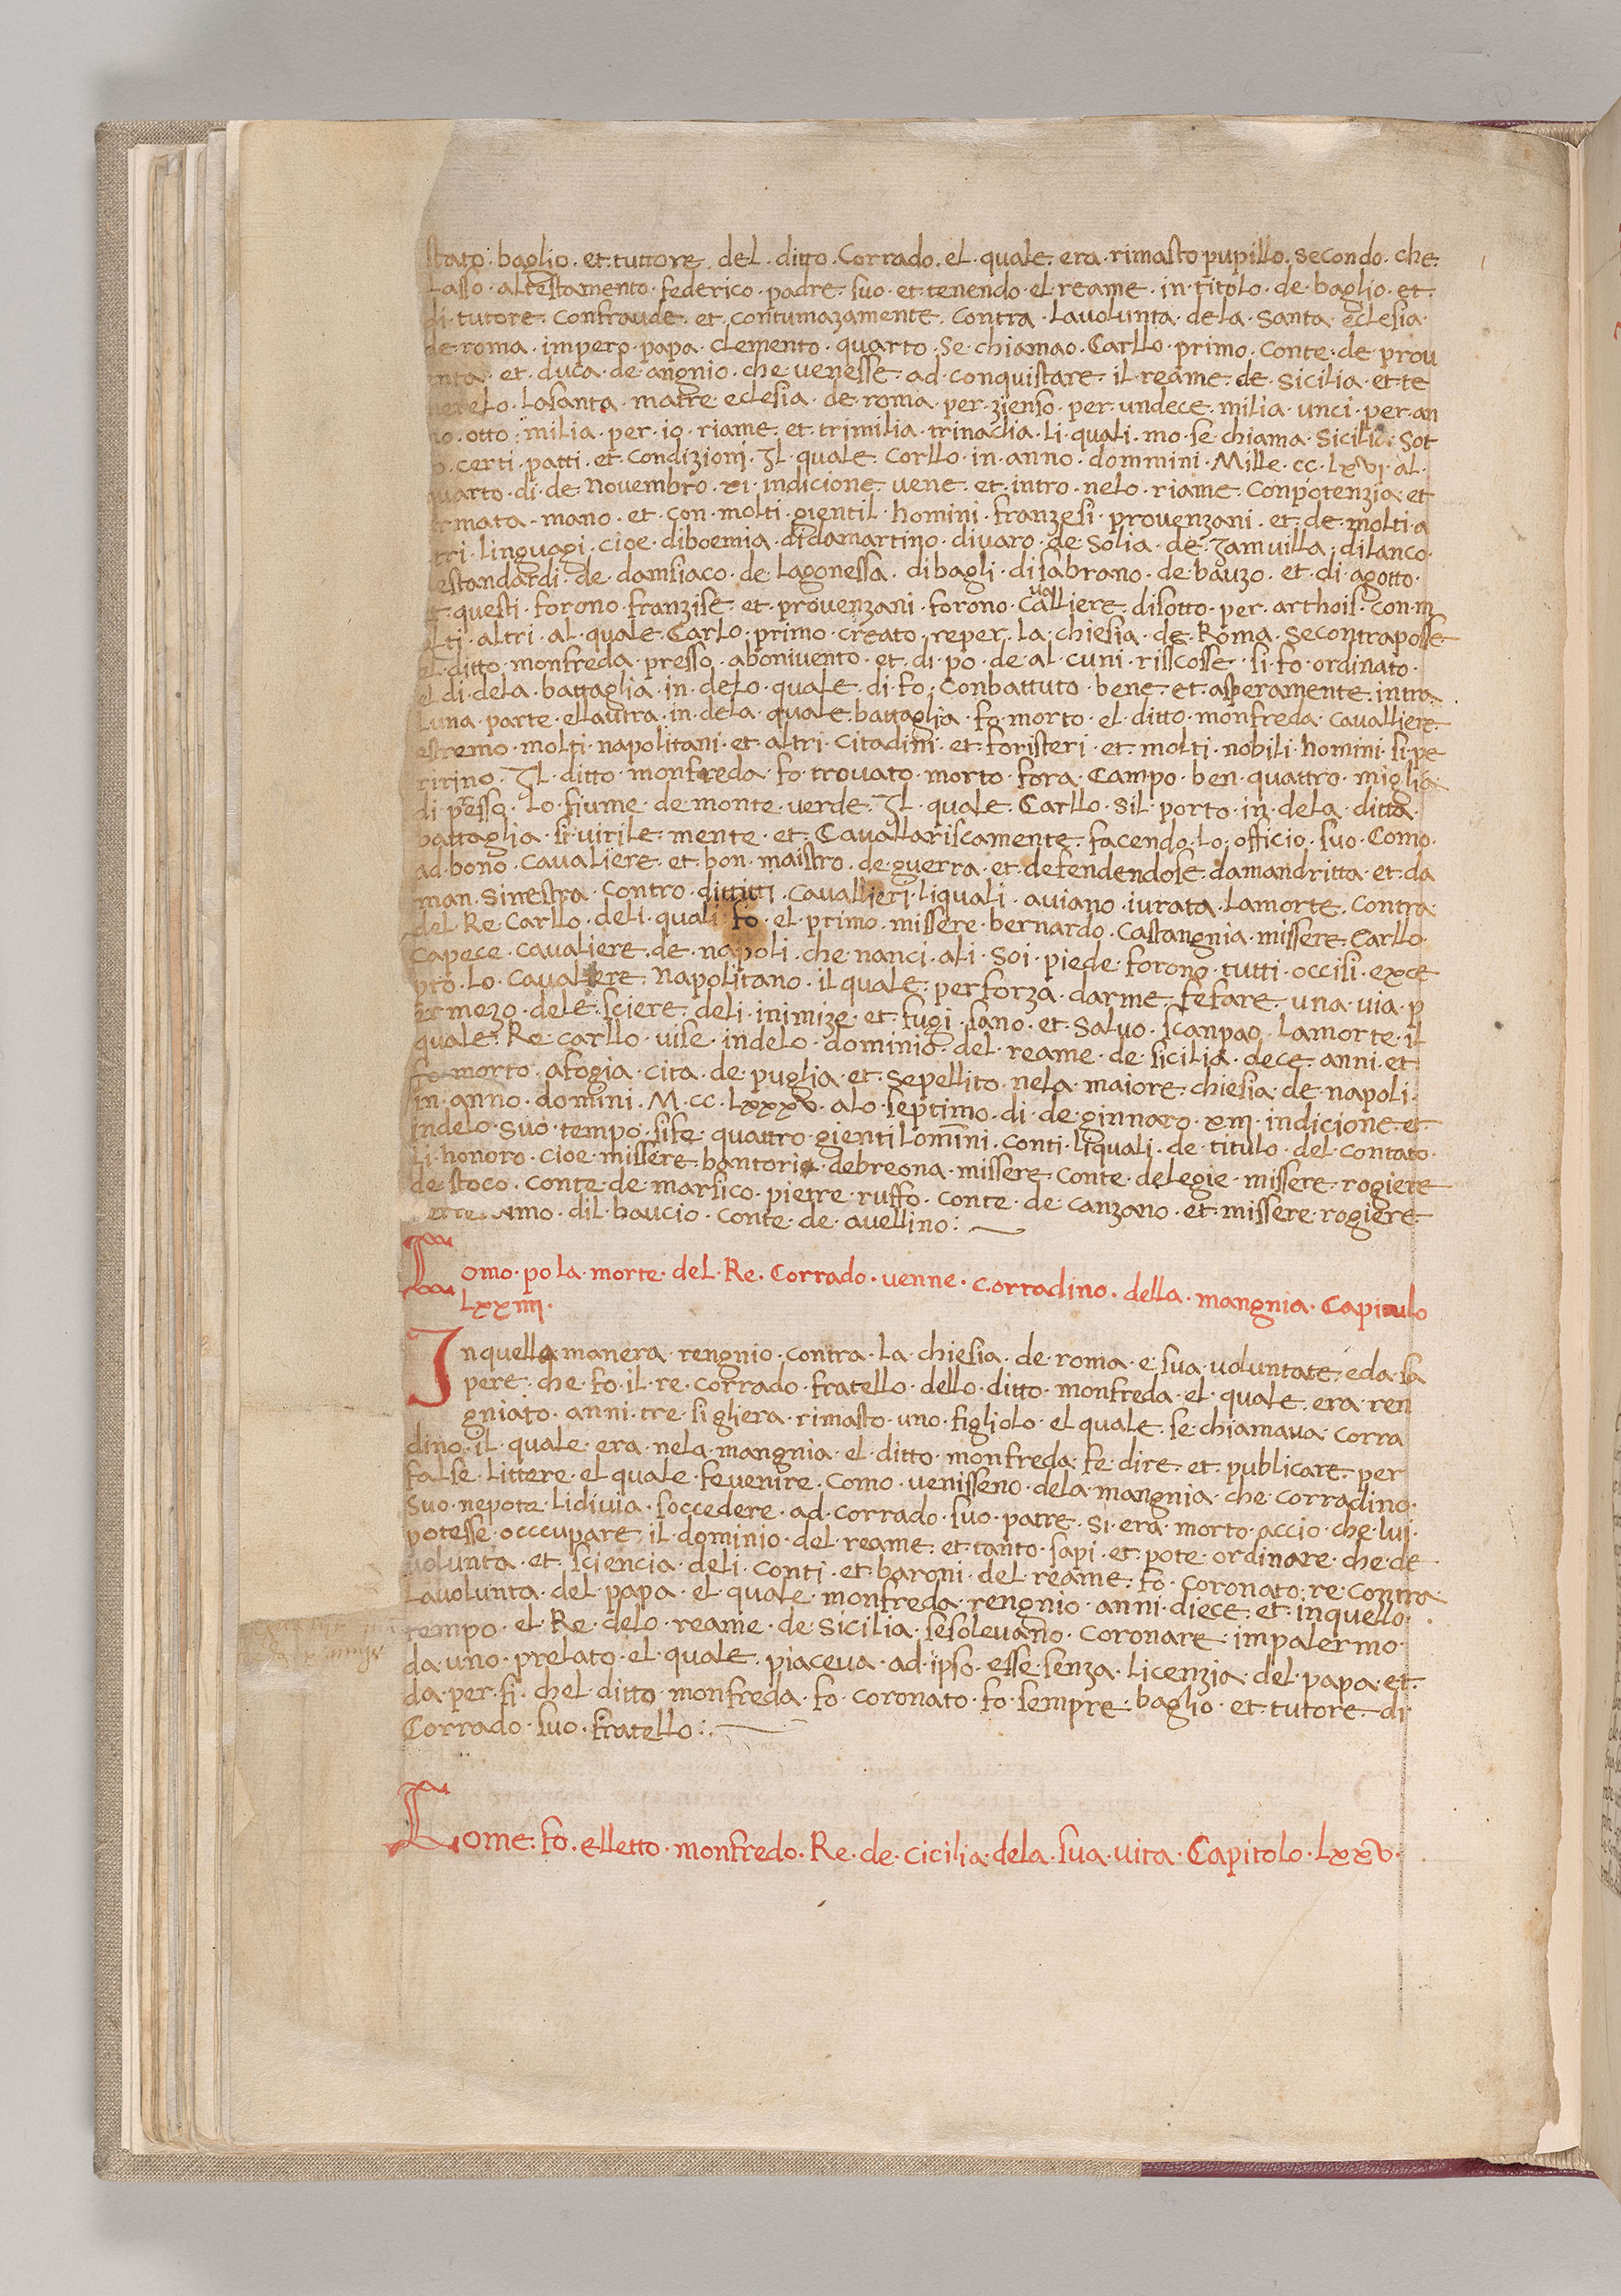 stato · baglio · et · tuttore · del · ditto · Corrado · el · quale · era · rimasto pupillo · secondo · che
lasso · altestamento · federico · padre · suo · et · tenendo · el reame · in · titolo · de · baglio · et
di · tutore · Confraude · et contumazamente · Contra · Lavolunta · dela · Santa · eclesia ·
de · roma · impero · papa · clemento · quarto · Se chiamao · Carllo · primo · Conte · de prou
et · duca · de angnio · che venesse · ad · conquistare · il reame · de · Sicilia · et te
nerelo · Lasanta · matre eclesia · de roma · per · zienso · per · undece · milia · unci · per · an
no · otto · milia · per · io · riame · et · trimilia · trinaclia · li · quali · mo · se chiama · Sicilia · Sot
certi · patti · et · condizioni · Il · quale · Corllo · in · anno · dommini · Mille · cc · Lxvi · al ·
quarto · di · de Novembro · xi · indicione · vene · et · intro · nelo · riame · Conpotenzia · et
armata · mano · et · con · molti · gientil · homini · franzesi · provenzani · et · de · molti · a
tri · linguagi · cioe · diboemia · didamartino · divaro · de Solia · de · Zamvilla · dilanco ·
lestandardi · de damsiaco · de lagonessa · dibagli · disabrano · de bauzo · et · di · agotto ·
et · questi · forono · franzise · et · provenzani · forono · Cavalliere · disotto · per · arthois · con · m
olti · altri · al · quale · Carlo · primo · creato · reper · la · chiesia · de · Roma · Secontraposse
el · ditto · monfreda · presso · abonivento · et · di · po · de · al · cuni · risscosse · si · fo · ordinato ·
el · di · dela · battaglia · in · delo · quale · di · fo · conbattuto · bene · et · asperamente · intra
Luna · parte · ellautra · in · dela · quale · battaglia · fo · morto · el · ditto · monfreda · cavalliere
estremo · molti · napolitani · et · altri · Citadini · et · foristeri · et · molti · nobili · homini · si · pe
ririno · Il · ditto · monfreda · fo · trovato · morto · fora · Campo · ben · quattro · miglia
di · presso · lo · fiume · de monte · verde · Il · quale · Carllo · Sil · porto · in · dela · ditta ·
battaglia · si · virile · mente · et · Cavallariscamente · facendo · Lo · officio · suo · Como ·
ad · bono · cavaliere · et bon · maistro · de guerra · et · defendendose · damandritta · et · da
man · Sinestra · Contro · dittitti · Cavallieri · liquali · aviano · iurata · Lamorte · Contra ·
del · Re · Carllo · deli · quali · fo · el · primo · missere · bernardo · Castangnia · missere · Carllo ·
Capece · cavaliere · de · napoli · che nanci · ali · Soi · piede · forono · tutti · occisi · exce
pto · Lo · cavaliere · Napolitano · il quale · perforza · darme · fefare · una · via · p
er mezo · dele · sciere · deli · inimize · et · fugi · sano · et · Salvo · scanpao · Lamorte · il
quale · Re · carllo · vise · indelo · dominio · del · reame · de · sicilia · dece · anni · et
fo morto · afogia · cita · de · puglia · et · Sepellito · nela · maiore · chiesia · de · napoli ·
in · anno · domini · M · cc · Lxxxv · alo · septimo · di · de · ginnaro · xiii · indicione · et
indelo · suo · tempo · sife · quattro · gientilomini · conti · liquali · de · titulo · del · contato ·
li · honoro · cioe · missere · bontorio · debreona · missere · Conte · delegie · missere · rogiere
de stoco · conte · de marsico · pietre · ruffo · conte · de canzano · et · missere · rogiere
dil · baucio · conte · de · avellino :
Como · po la · morte · del · Re · Corrado · venne · corradino · della · mangnia · Capitulo
Lxxiiii ·
Inquella manera · rengnio · contra · la · chiesia · de · roma · e · sua · voluntate · eda · sa
pere · che · fo · il · re · corrado · fratello · dello · ditto · monfreda · el · quale · era · ren
gniato · anni · tre · si gliera · rimasto · uno · figliolo · el quale · se · chiamaua · corra
dino · il · quale · era · nela · mangnia · el · ditto · monfreda · fe · dire · et · publicare · per
false · littere · el quale · fevenire · como · venisseno · dela · mangnia · che · corradino ·
Suo · nepote · lidivia · soccedere · ad · corrado · suo · patre · si · era · morto · accio · che · lui ·
potesse · occcupare · il · dominio · del · reame · et · tanto · sapi · et · pote · ordinare · che · de
volunta · et · sciencia · deli · conti · et · baroni · del · reame · fo · coronato · re · contra ·
Lavolunta · del · papa · el · quale · monfreda · rengnio · anni · diece · et · inquello ·
tempo · el · Re · delo · reame · de · Sicilia · sesolevano · Coronare · impalermo ·
da · uno · prelato · el · quale · piaceva · ad · ipso · esse · senza · licenzia · del · papa · et ·
da · per · fi · chel · ditto · monfreda · fo · coronato · fo · sempre · baglio · et · tutore · di ·
Corrado · suo · fratello :
Come · fo · elletto · monfredo · Re · de · cicilia · dela · sua · vita · Capitolo · Lxxv ·